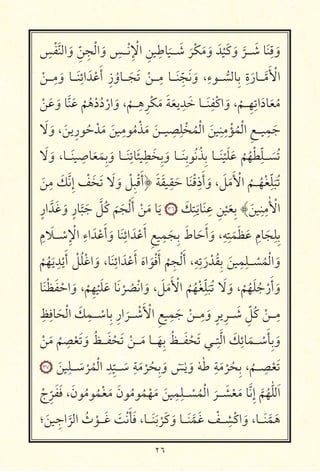 وَقِنَا شَرَّ كَيْدِ وَمَكْرِ شَيَاطِينِ الْإِنْسِ وَالْجِنِّ وَالنَّفْسِ
الْأَمَّارَةِ بِالسُّوءِ، وَنَجِّنَا مِنْ تَجَاوُزِ أَعْدَائِنَا وَمِنْ
مُعَادَاتِهِمْ، وَاكْفِنَا خَدِيعَةَ مَكْرِهِمْ، وَارْدُدْهُمْ عَنَّا وَعَنْ
جَمِيعِ الْمُؤْمِنِينَ الْمُخْلِصِينَ مَذْمُومِينَ مَدْحُورِينَ، وَلَا
تُسَلِّطْهُمْ عَلَيْنَا بِذُنُوبِنَا وَبِخَطِيئَاتِنَا وَبِمَعَاصِينَا، وَلَا
تُبَلِّغْهُمُ الْأَمَلَ، وَأَذِقْنَا حَقِيقَةَ ﴿أَقْبِلْ وَلَا تَخَفْ إِنَّكَ مِنَ
الْاٰمِنِينَ﴾ بِعَيْنِ عِنَايَتِكَ ۝٣٦ يَا مَنْ أَلْجَمَ كُلَّ جَبَّارٍ وَغَدَّارٍ
بِلِجَامِ عَظَمَتِهِ، وَأَحَاطَ بِجَمِيعِ أَعْدَائِنَا وَأَعْدَاءِ الْإِسْلَامِ
وَالْمُسْلِمِينَ بِقُدْرَتِهِ، أَلْجِمْ أَفْوَاهَ أَعْدَائِنَا، وَاغْلُلْ أَيْدِيَهُمْ
وَأَرْجُلَهُمْ، وَلَا تُبَلِّغْهُمُ الْأَمَلَ، وَانْصُرْنَا عَلَيْهِمْ، وَاحْفَظْنَا
مِنْ كُلِّ شَرِيرٍ وَمِنْ جَمِيعِ الْأَشْرَارِ بِاسْمِكَ الْحَافِظِ
وَبِأَسْمَائِكَ الَّتِي تَحْفَظُ بِهَا مَنْ تَحْفَظُ وَتَعْصِمُ مَنْ
تَعْصِمُ، بِحُرْمَةِ طٰهٰ وَيٰسٓ وَبِحُرْمَةِ سَيِّدِ الْمُرْسَلِينَ ۝٣٧
اَللّٰهُمَّ إِنَّا مَعْشَرَ الْمُسْلِمِينَ مَهْمُومُونَ مَغْمُومُونَ، فَفَرِّجْ
هَمَّنَا، وَاكْشِفْ غَمَّنَا وَكَرْبَنَا، فَأَنْتَ غَوْثُ الرَّاجِينَ؛
٢٦